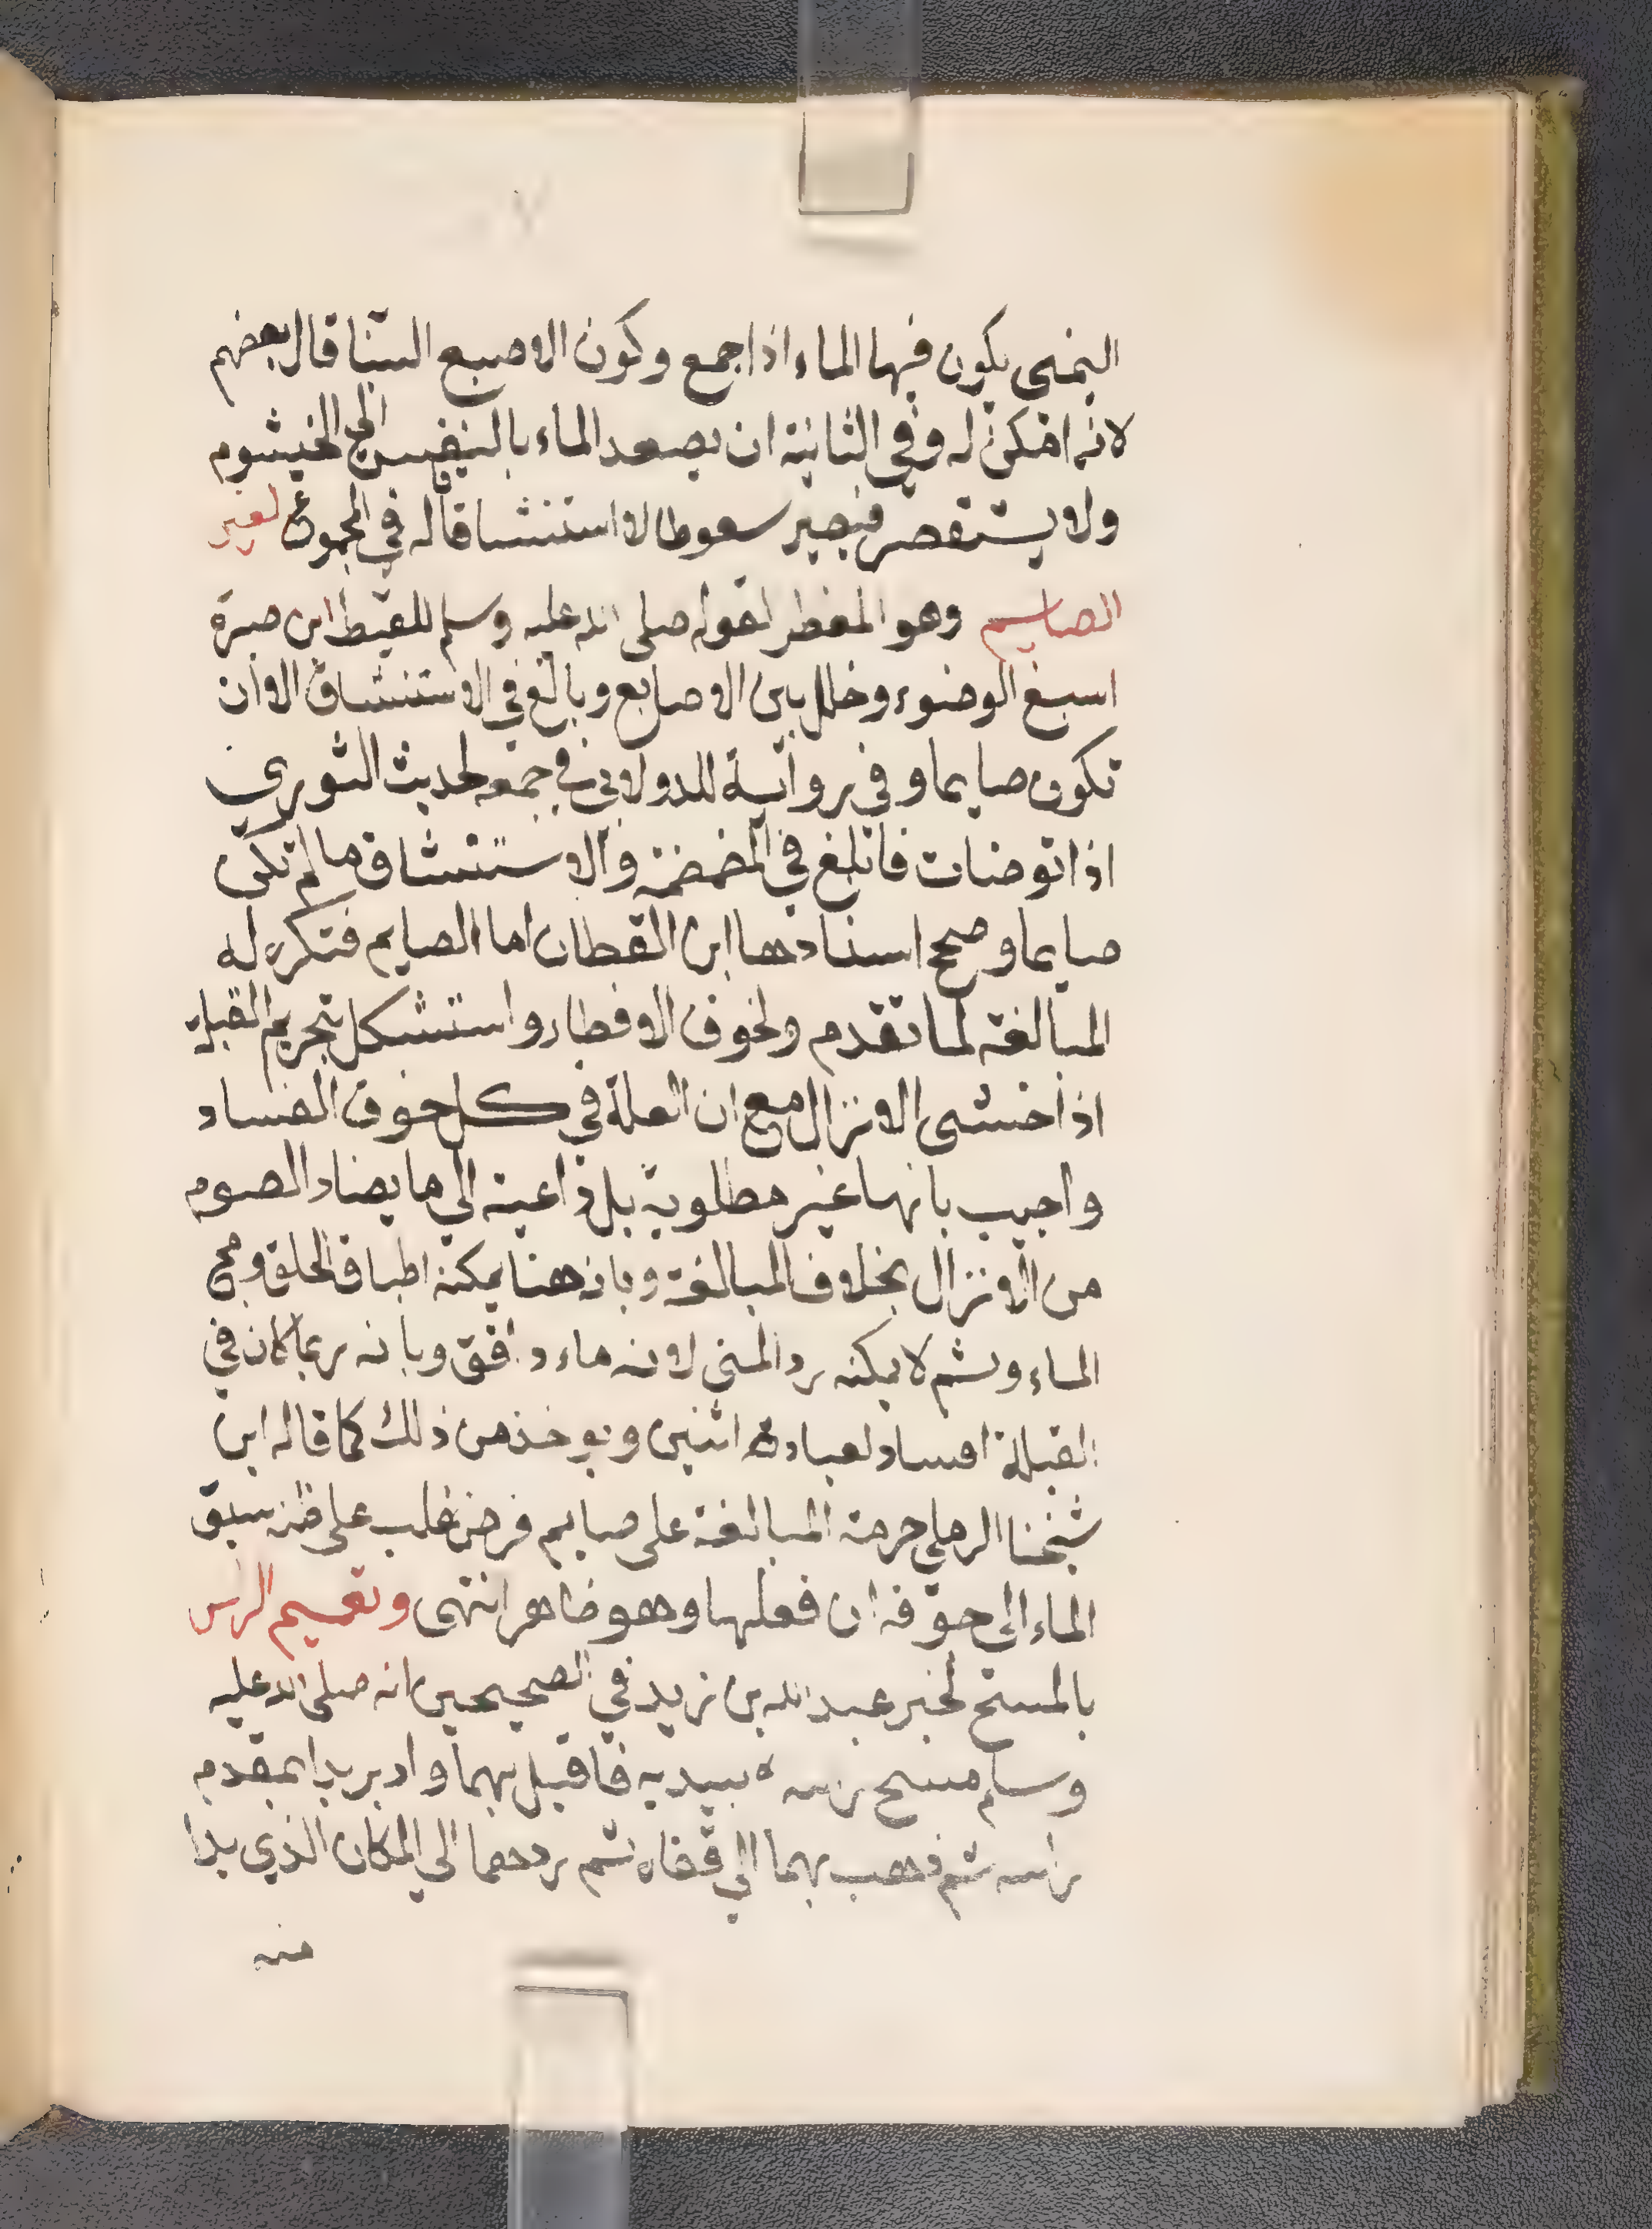 اليمنى يكون فيها الماء اذا جمع وكون الاصبع اليسنا قال بعضهم
لانه امكن له وفي الثانية ان يصعد الماء بالنفس الى الخيشوم
ولا يستقصر فيصير سعوطا لا استنشاقا له في المجموع لغير
الصايم وهو المفطر لقوله صلى الله عليه وسلم للقيط ابن صبرة
اسبغ الوضوء وخلل بين الاصابع وبالغ في الاستنشاق الا ان
تكون صايما وفي رواية للدولابي في جمعه لحديث الثوري
اذا توضات فابلغ في المضمضة والاستنشاق ما لم تكن
صايما وصحح اسنادها ابن القطان اما الصايم فتكره له
المبالغة لما تقدم ولخوف الافطار واستشكل بتحريم القبلة
اذا خشى الانزال مع ان العلة في كل خوف الفساد
واجيب بانها غير مطلوبة بل داعية الى ما يضاد الصوم
من الانزال بخلاف المبالغة وبان هنا يمكنه اطباق الحلق ومج
الماء وثم لا يمكنه رد المني لانه ماء دافق وبانه ربما كان في
القبلة افساد لعبادة اثنين ويوخذ من ذلك كما قاله ابن
شيخنا الرملي حرمة المبالغة على صايم فرض غلب على ظنه سبق
الماء الى جوفه ان فعلها وهو ظاهر انتهى وتعميم الراس
بالمسح لخبر عبد الله بن زيد في الصحيحين انه صلى الله عليه
وسلم مسح راسه بيديه فاقبل بهما وادبر بدا بمقدم
راسه ثم ذهب بهما الى قفاه ثم ردهما الى المكان الذي بدا
منه